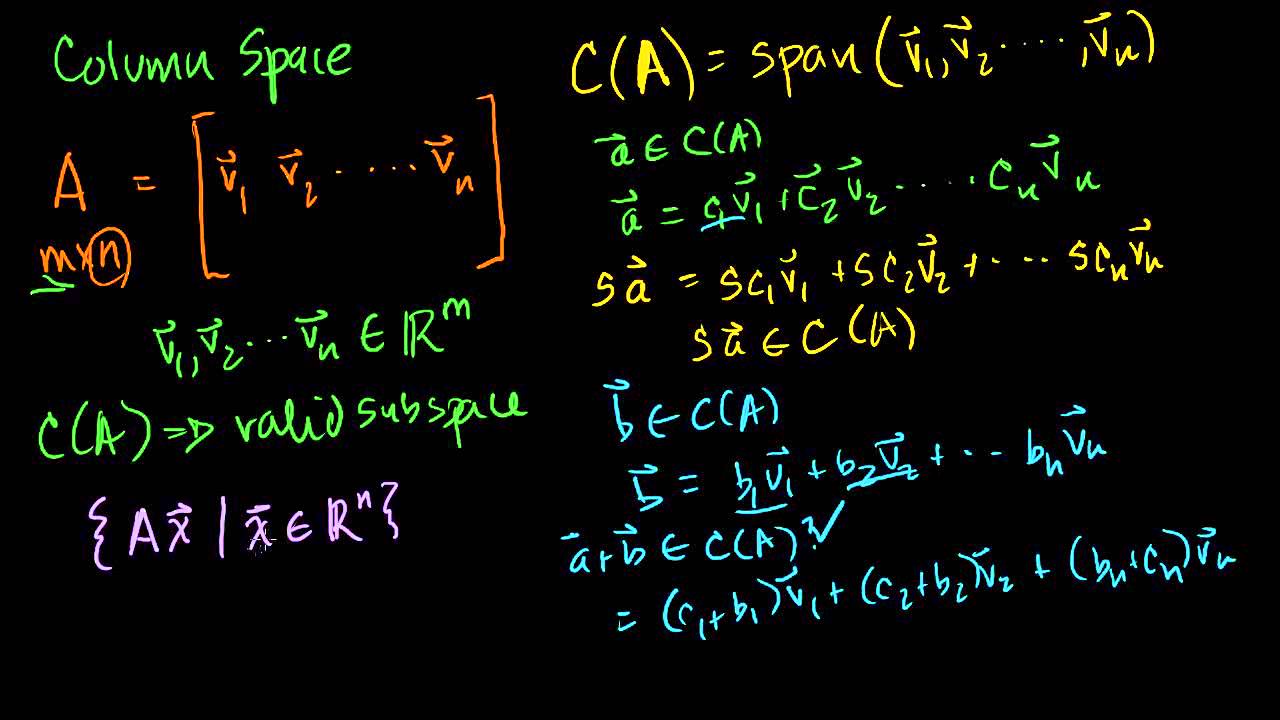 Column Space
A = [v⃗₁ v⃗₂ ····· v⃗ₙ]
m×n
v⃗₁, v⃗₂ ··· v⃗ₙ ∈ ℝᵐ
C(A) ⇒ valid subspace
{Ax⃗ | x⃗ ∈ ℝⁿ}
C(A) = span(v⃗₁, v⃗₂ ·····, v⃗ₙ)
a⃗ ∈ C(A)
a⃗ = c₁v⃗₁ + c⃗₂v⃗₂ ····· cₙv⃗ₙ
sa⃗ = sc₁v⃗₁ + sc₂v⃗₂ + ···· scₙv⃗ₙ
sa⃗ ∈ C(A)
b⃗ ∈ C(A)
b⃗ = b₁v⃗₁ + b₂v⃗₂ + ··· bₙv⃗ₙ
a⃗+b⃗ ∈ C(A)? ✓
= (c₁+b₁)v⃗₁ + (c₂+b₂)v⃗₂ + (bₙ+cₙ)v⃗ₙ